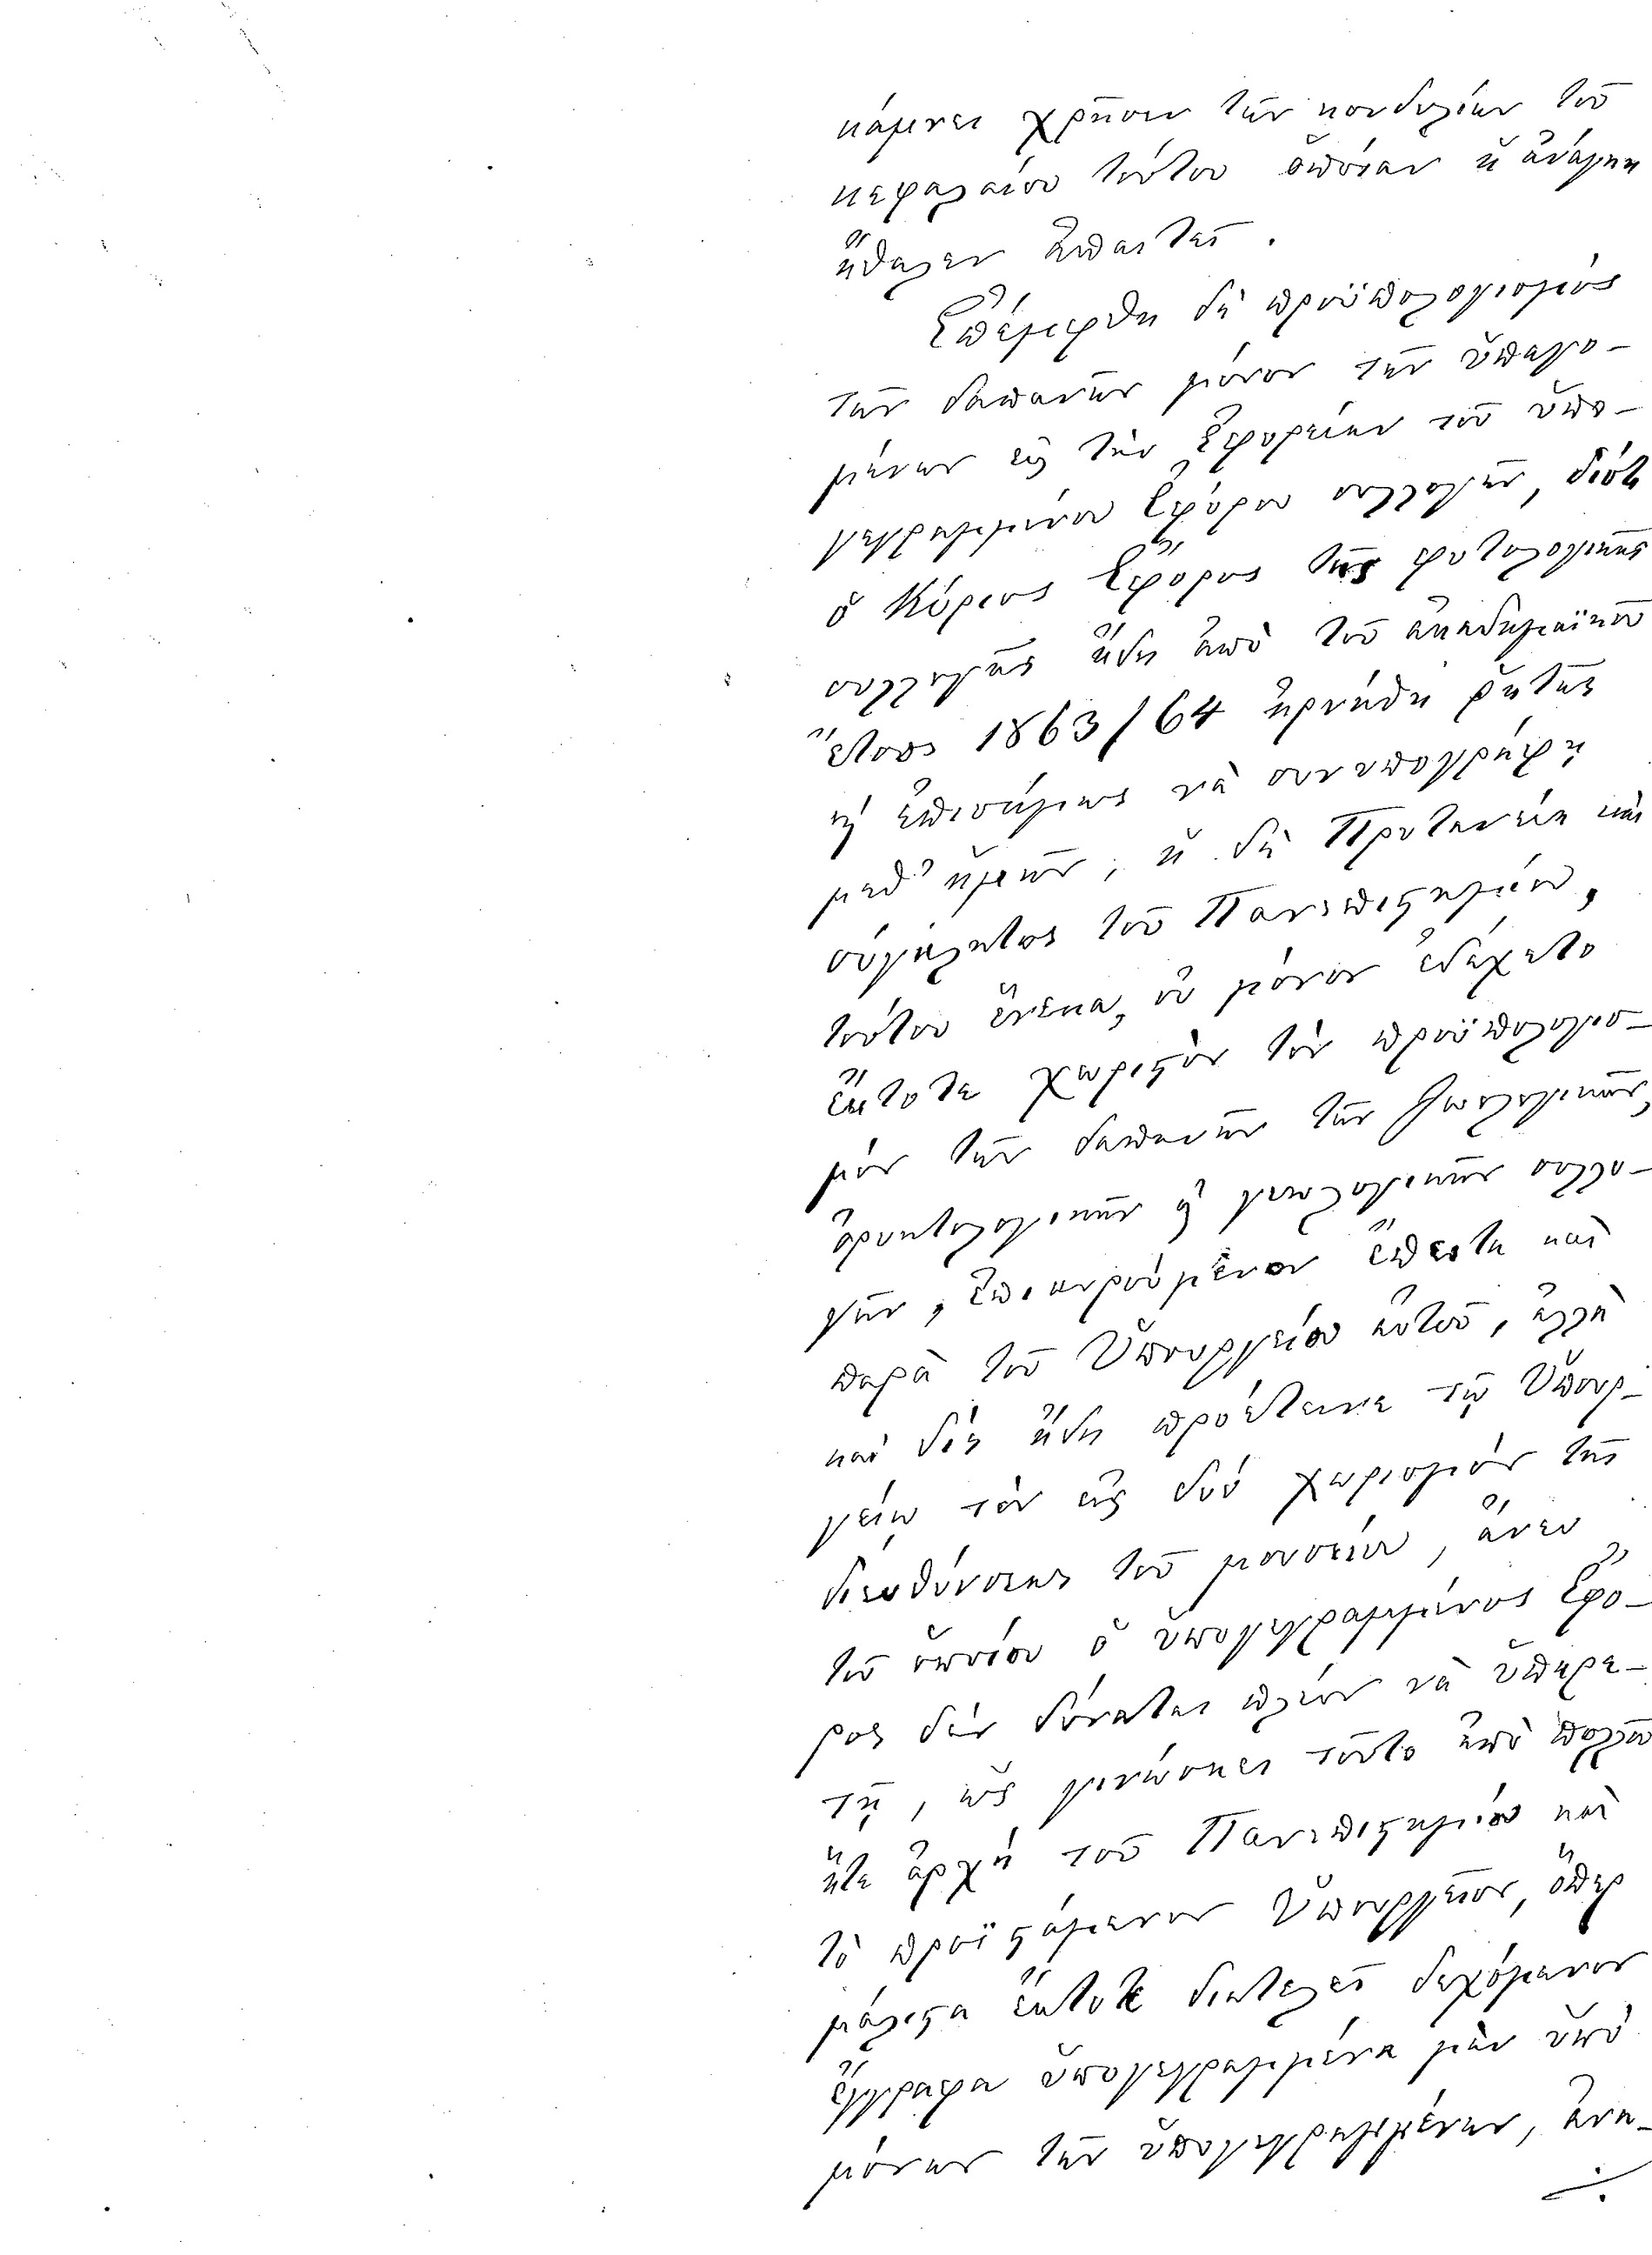 κάμνει χρῆσιν τῶν κονδυλίων τοῦ
κεφαλαίου τούτου ὁπόταν ἡ ἀνάγκη
ἤθελεν ἀπαιτεῖ.
Ἐπέμφθη δὲ προϋπολογισμὸς
τῶν δαπανῶν μόνον τῶν ὑπαγο-
μένων εἰς τὴν Ἐφορείαν τοῦ ὑπο-
γεγραμμένου Ἐφόρου συλλογῶν, διότι
ὁ Κύριος Ἔφορος τῆς φυτολογικῆς
συλλογῆς ἤδη ἀπὸ τοῦ ἀκαδημαϊκοῦ
ἔτους 1863/64 ἠρνήθη ῥητῶς
καὶ ἐπισήμως νὰ συνυπογράφῃ
μεθ' ἡμῶν, ἡ δὲ Πρυτανεία καὶ
σύγκλητος τοῦ Πανεπιστημίου,
τούτου ἕνεκα, οὐ μόνον ἐδέχετο
ἔκτοτε χωριστὸν τὸν προϋπολογισ-
μὸν τῶν δαπανῶν τῶν ζωολογικῶν,
ὀρυκτολογικῶν καὶ γεωλογικῶν συλλο-
γῶν, ἐπικυρούμενον ἔπειτα καὶ
παρὰ τοῦ Ὑπουργείου αὐτοῦ, ἀλλὰ
καὶ δὶς ἤδη προέτεινε τῷ Ὑπουρ-
γείῳ τὸν εἰς δύο χωρισμὸν τῆς
διευθύνσεως τοῦ μουσείου, ἄνευ
τοῦ ὁποίου ὁ ὑπογεγραμμένος Ἔφο-
ρος δὲν δύναται πλέον νὰ ὑπηρε-
τῇ, ὡς γινώσκει τοῦτο ἀπὸ πολλοῦ
ἥτε ἀρχὴ τοῦ Πανεπιστημίου καὶ
τὸ προϊστάμενον Ὑπουργεῖον, ὅπερ
μάλιστα ἔκτοτε διατελεῖ δεχόμενον
ἔγγραφα ὑπογεγραμμένα μὲν ὑπὸ
μόνων τῶν ὑπογεγραμμένων, ἀνα-